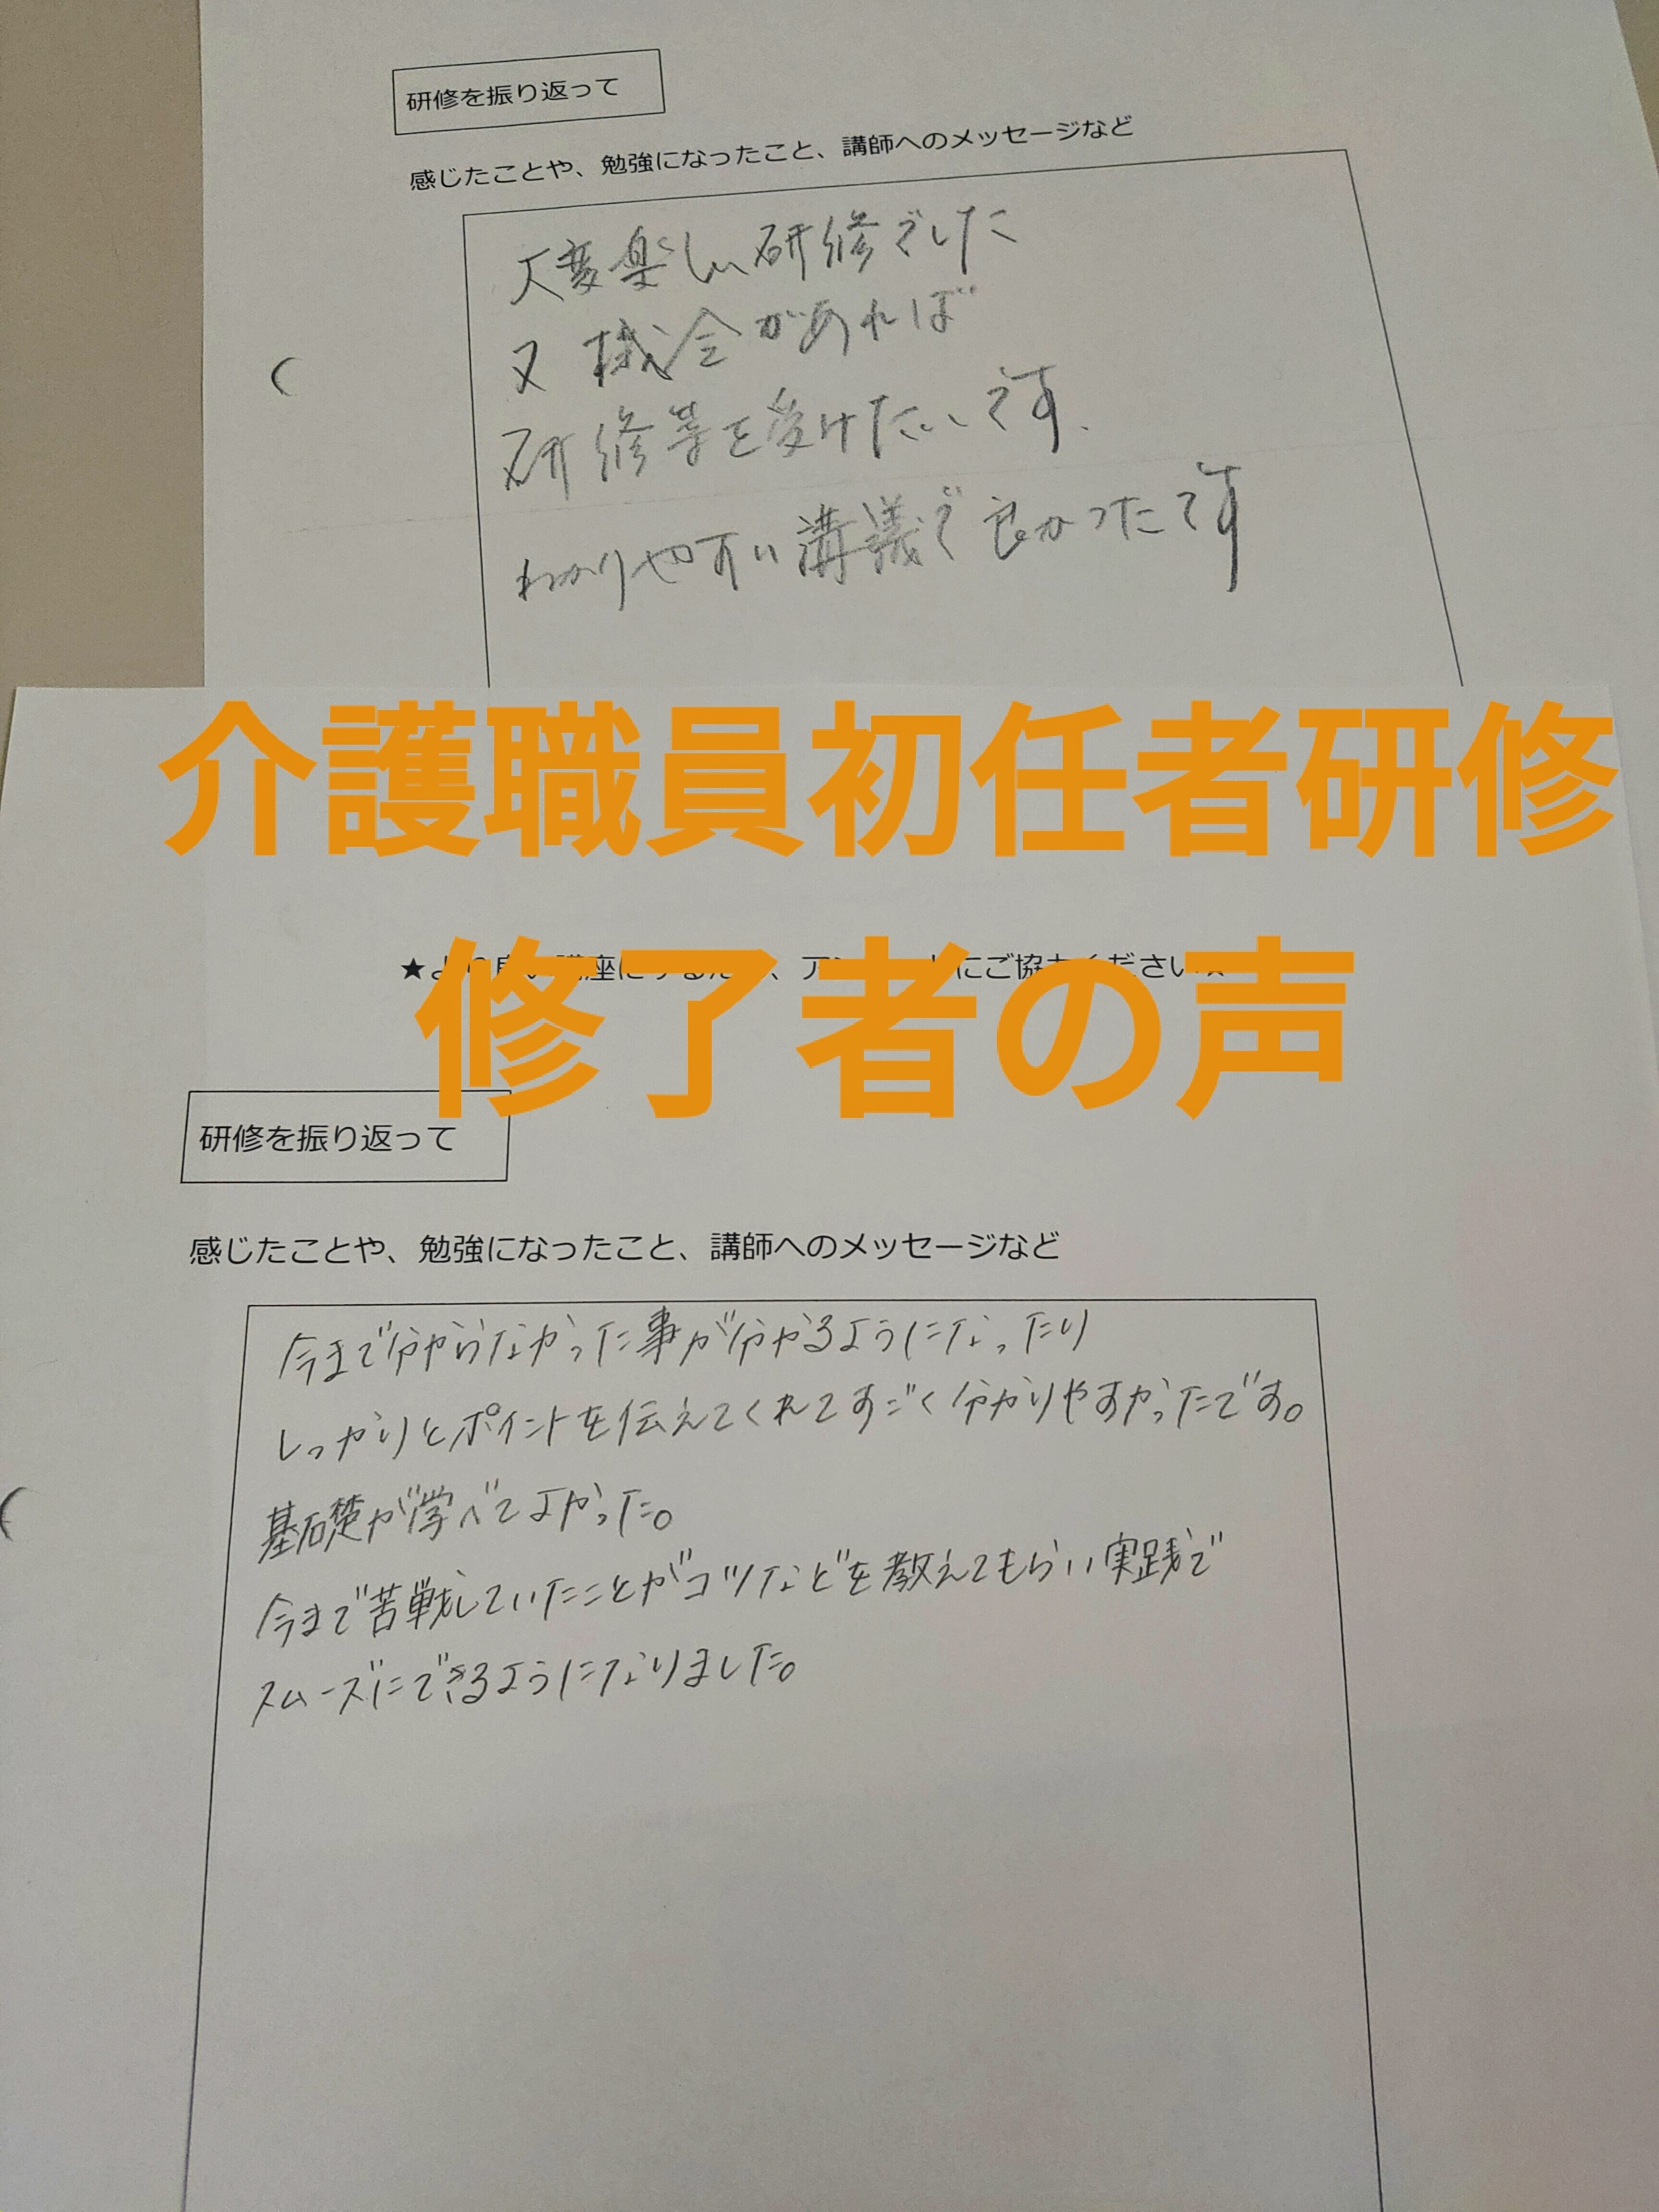 研修を振り返って
感じたことや、勉強になったこと、講師へのメッセージなど
大変楽しい研修でした
又機会があれば
研修等を受けたいです.
わかりやすい講義で良かったです
介護職員初任者研修
修了者の声
★より良い講座にするため、アンケートにご協力ください★
研修を振り返って
感じたことや、勉強になったこと、講師へのメッセージなど
今まで分からなかった事が分かるようになったり
しっかりとポイントを伝えてくれてすごく分かりやすかったです。
基礎が学べてよかった。
今まで苦戦していたことがコツなどを教えてもらい実践で
スムーズにできるようになりました。